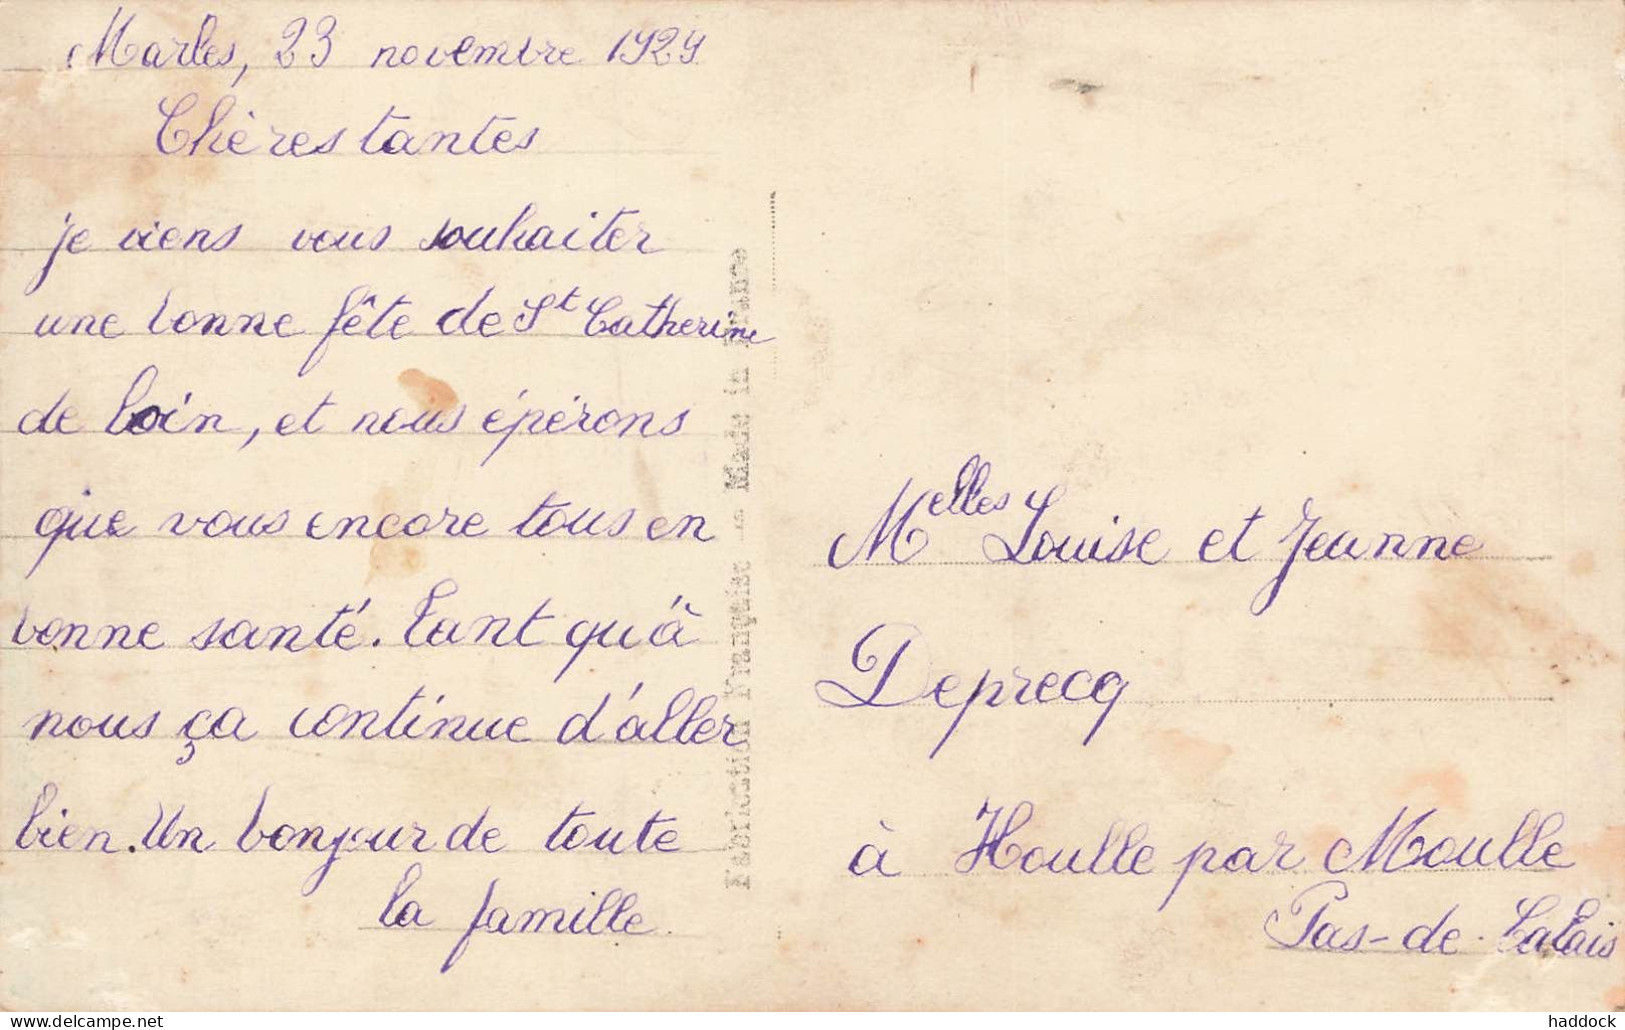 Marles, 23 novembre 1929
Chères tantes
je viens vous souhaiter
une bonne fête de St Catherine
de loin, et nous épérons
que vous encore tous en
bonne santé. Tant qu'à
nous ça continue d'aller
bien. Un bonjour de toute
la famille.
Fabrication Française - Made in France
Melles Louise et Jeanne
Deprecq
à Houlle par Moulle
Pas-de-Calais
delcampe.net
haddock